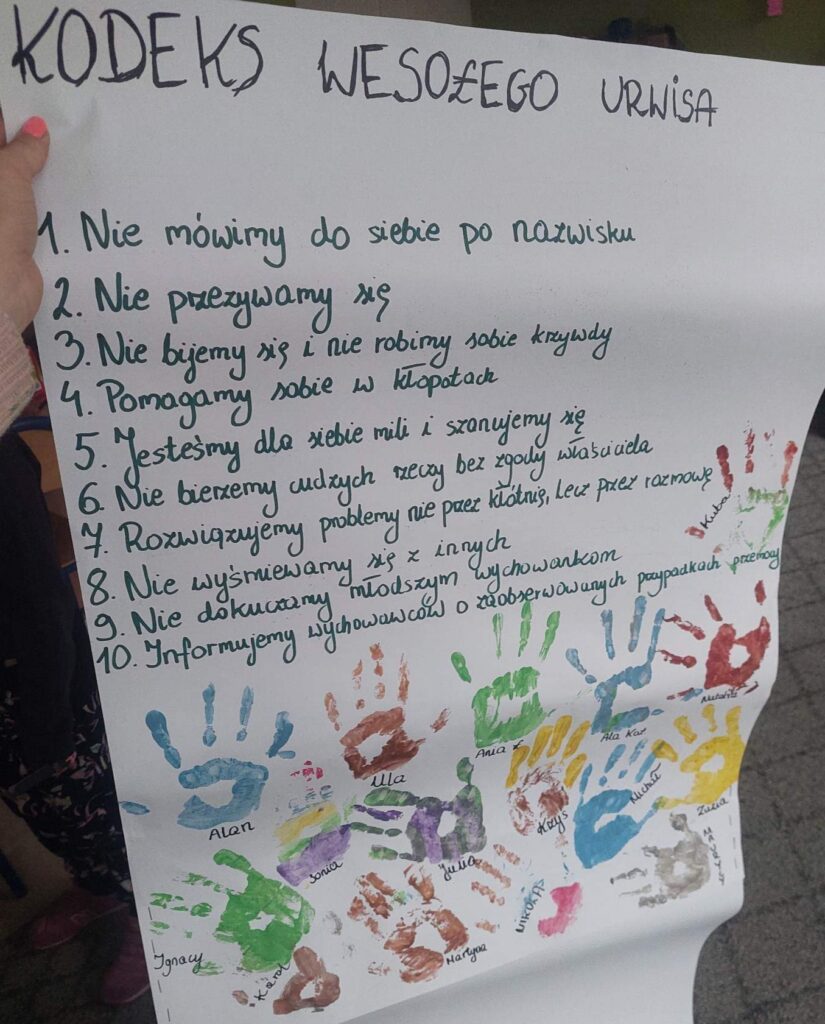 KODEKS WESOŁEGO URWISA
1. Nie mówimy do siebie po nazwisku
2. Nie przezywamy się
3. Nie bijemy się i nie robimy sobie krzywdy
4. Pomagamy sobie w kłopotach
5. Jesteśmy dla siebie mili i szanujemy się
6. Nie bierzemy cudzych rzeczy bez zgody właściciela
7. Rozwiązujemy problemy nie przez kłótnię, lecz przez rozmowę
8. Nie wyśmiewamy się z innych
9. Nie dokuczamy młodszym wychowankom
10. Informujemy wychowawców o zaobserwowanych przypadkach przemocy
Kuba
Natalia
Ala Kat
Ania
Ulla
Alan
Michał
Zuzia
Krzys
Julia
Sonia
NIKOLAS
Martyna
Ignacy
Karol